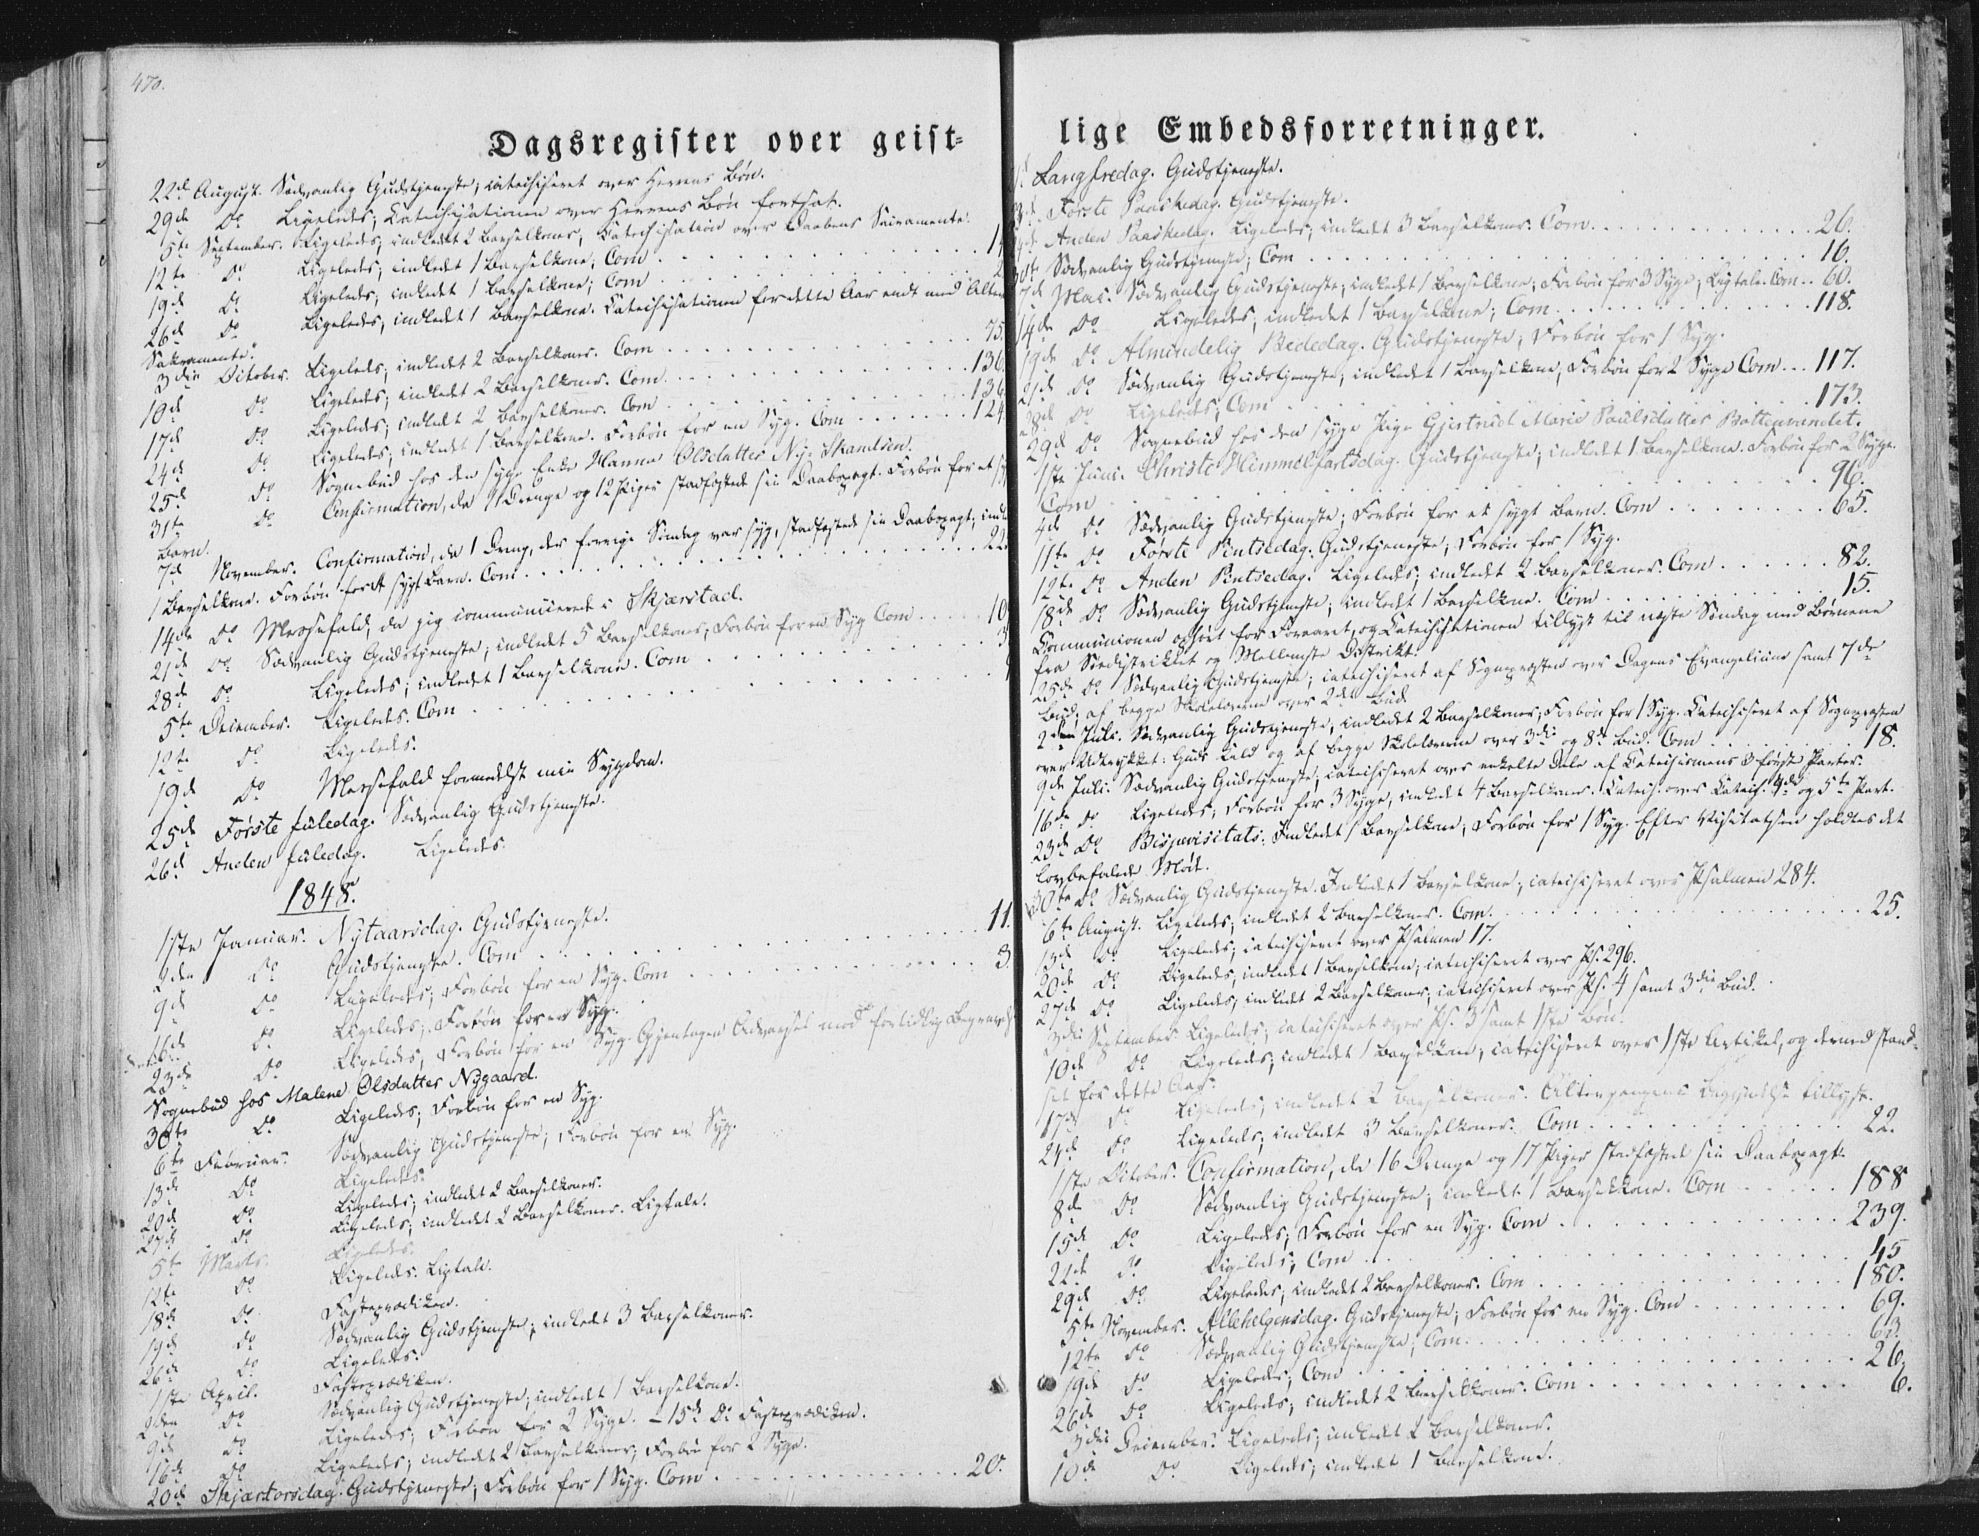 470.
Dagsregister over geist-
22d August. Sædvanlig Gudstjeneste; catechiseret over Herrens Bøn.
29de Do Ligeledes; Catechisationen over Herrens Bøn fortsat.
5te September. Ligeledes; indledet 2 Barselkoner; Catechisation over Daabens Sacramente.
12te Do Ligeledes; indledet 1 Barselkone; Com
19de Do Ligeledes; indledet 1 Barselkone; Com
26d Do Ligeledes, indledet 1 Barselkone. Catechisationen for dette Aar endt med Altens
Sakramente.
3die October. Ligeleds; indledet 2 Barselkoner. Com 75.
10d Do Ligeledes; indledet 2 Barselkoner. Com 136.
17d Do Ligeledes; indledt 2 Barselkoner. Com 136
24d Do Ligeledes; indledet 1 Barselkone. Forbøn for en Syg. Com 124
25d Do Sognebud hos den syge Enke Hanna Olsdatter Ny-
31te Do Confirmation, da Drenge og 12 Piger stadfæstede sin Daabspagt. Forbøn for et
Barn.
7d November. Confirmation, da 1 Dreng, der forrige Søndag var syg, stadfæstede sin Daabspagt;
1 Barselkone. Forbøn for et sygt Barn. Com 22
14de Do Messefald, da jeg communicerede i Skjærstad.
21d Do Sædvanlig Gudstjeneste; indledet 5 Barselkoner; Forbøn for en Syg Com 10
28d Do Ligeledes; indledet 1 Barselkone. Com 3
5te December. Ligeledes. Com
12te Do Ligeledes.
19d Do Messefald formedelst min Sygdom.
25d Første Juledag. Sædvanlig Gudstjeneste.
26d Anden Juledag. Ligeledes.
1848.
1ste Januar. Nytaarsdag. Gudstjeneste.
2den Do Gudstjeneste. Com 11.
9d Do Ligeledes; Forbøn for en Syg. Com 3
16de Do Ligeledes; Forbøn for en Syg.
23de Do Ligeledes; Forbøn for en Syg. Gjentagen Advarsel mod fortidlig
Sognebud hos Malene Olsdatter Nygaard.
30te Do Ligeledes; Forbøn for en Syg.
6te Februar. Sædvanlig Gudstjeneste; Forbøn for en Syg.
13d Do Ligeledes.
20d Do Ligeledes; indledet 2 Barselkoner.
27d Do Ligeledes; indledet 2 Barselkoner. Ligtale.
5te Marts. Ligeledes.
12te Do Ligeledes. Ligtale.
18d Do Fasteprædiken.
19d Do Sædvanlig Gudstjeneste; indledet 3 Barselkoner.
26d Do Ligeledes.
1ste April. Fasteprædiken.
2den Do Sædvanlig Gudstjeneste; indledet 1 Barselkone.
9d Do Ligeledes; Forbøn for 2 Syge. - 15d Do Fasteprædiken.
16d Do Ligeledes; indledet 2 Barselkoner; Forbøn for 2 Syge.
20d Skjærtorsdag. Gudstjeneste; Forbøn for 1 Syg. Com 20.
lige Embedsforretninger.
Langfredag. Gudstjeneste.
Første Paaskedag. Gudstjeneste.
Anden Paaskedag. Ligeledes; indledet 3 Barselkoner. Com 26.
30te Sædvanlig Gudstjeneste; Com 16.
7d Mai. Sædvanlig Gudstjeneste; indledet 1 Barselkone; Forbøn for 3 Syge; Ligtale. Com 60.
14de Do Ligeledes; indledet 1 Barselkone; Com 118.
19de Do Almindelig Bededag. Gudstjeneste; Forbøn for 1 Syg.
21d Do Sædvanlig Gudstjeneste; indledet 1 Barselkone; Forbøn for 2 Syge Com 117.
28d Do Ligeledes; Com 173.
29d Do Sognebud hos den syge Pige Gjertrud Marie Paulsdatter Bottenvendet.
1ste Juni. Christi Himmelfartsdag. Gudstjeneste; indledet 1 Barselkone. Forbøn for 2 Syge.
Com 96.
4d Do Sædvanlig Gudstjeneste; Forbøn for et sygt Barn. Com 65.
11te Do Første Pintsedag. Gudstjeneste; Forbøn for 1 Syg.
12te Do Anden Pintsedag. Ligeledes; indledet 2 Barselkoner. Com 82.
18de Do Sædvanlig Gudstjeneste; indledet 1 Barselkone. Com 15.
Communionen ophørt for Foraaret, og Catechisationen tillyst til neste Søndag med Børnene
fra Sædistriktet og Mellemste Distrikt.
25de Do Sædvanlig Gudstjeneste; catechiseret af Sognepræsten over Dagens Evangelium samt 7de
Bud, af begge Skolelærerne over 2det Bud.
2den Juli. Sædvanlig Gudstjeneste; indledet 2 Barselkoner; Forbøn for 1 Syg. Catechiseret af Sognepræsten
over Udtrykket: Guds og af begge Skolelærerne over 3die og 8de Bud. Com 18.
9de Juli. Sædvanlig Gudstjeneste; catechiseret over enkelte Dele af Catechismens 3 første Parter.
16de Do Ligeledes; Forbøn for 3 Syge, indledet 4 Barselkoner. Catech. over Catech. 4de og 5te Part.
23d Do Bispevisitats. Indledet 1 Barselkone; Forbøn for 1 Syg. Efter Visitatsen holdtes det
lovbefalede Møde.
30te Do Sædvanlig Gudstjeneste. Indledet 1 Barselkone; catechiseret over Psalmen 284.
6te August. Ligeledes; indledet 2 Barselkoner. Com. 25.
13d Do Ligeledes; catechiseret over Psalmen 17.
20de Do Ligeledes; indledet 1 Barselkone; catechiseret over Ps. 296.
27d Do Ligeledes; indledet 2 Barselkoner; catechiseret over Ps. 4 samt 3die Bud.
3die September. Ligeledes; catechiseret over Ps. 3 samt 1ste Bøn.
10d Do Ligeledes; indledet 1 Barselkone; catechiseret over 1ste Artikel, og dermed stand-
set for dette Aar.
17d Do Ligeledes; indledet 2 Barselkoner. Altergangens Begyndelse tillyst.
24d Do Ligeledes; indledet 3 Barselkoner. Com 22.
1ste October. Confirmation, da 16 Drenge og 17 Piger stadfæstede sin Daabspagt.
8d Do Sædvanlig Gudstjeneste; indledet 1 Barselkone. Com 188
15d Do Ligeledes; Forbøn for en Syg. Com 239.
22d Do Ligeledes; Com 45
29d Do Ligeledes; indledet 2 Barselkoner. Com 180.
5te November. Allehelgensdag. Gudstjeneste; Forbøn for en Syg. Com 69.
12te Do Sædvanlig Gudstjeneste; Com. 63.
19d Do Ligeledes; Com 26.
26d Do Ligeledes; indledet 2 Barselkoner. Com 6.
3die December. Ligeledes; indledet 2 Barselkoner.
10d Do Ligeledes; indledet 1 Barselkone.